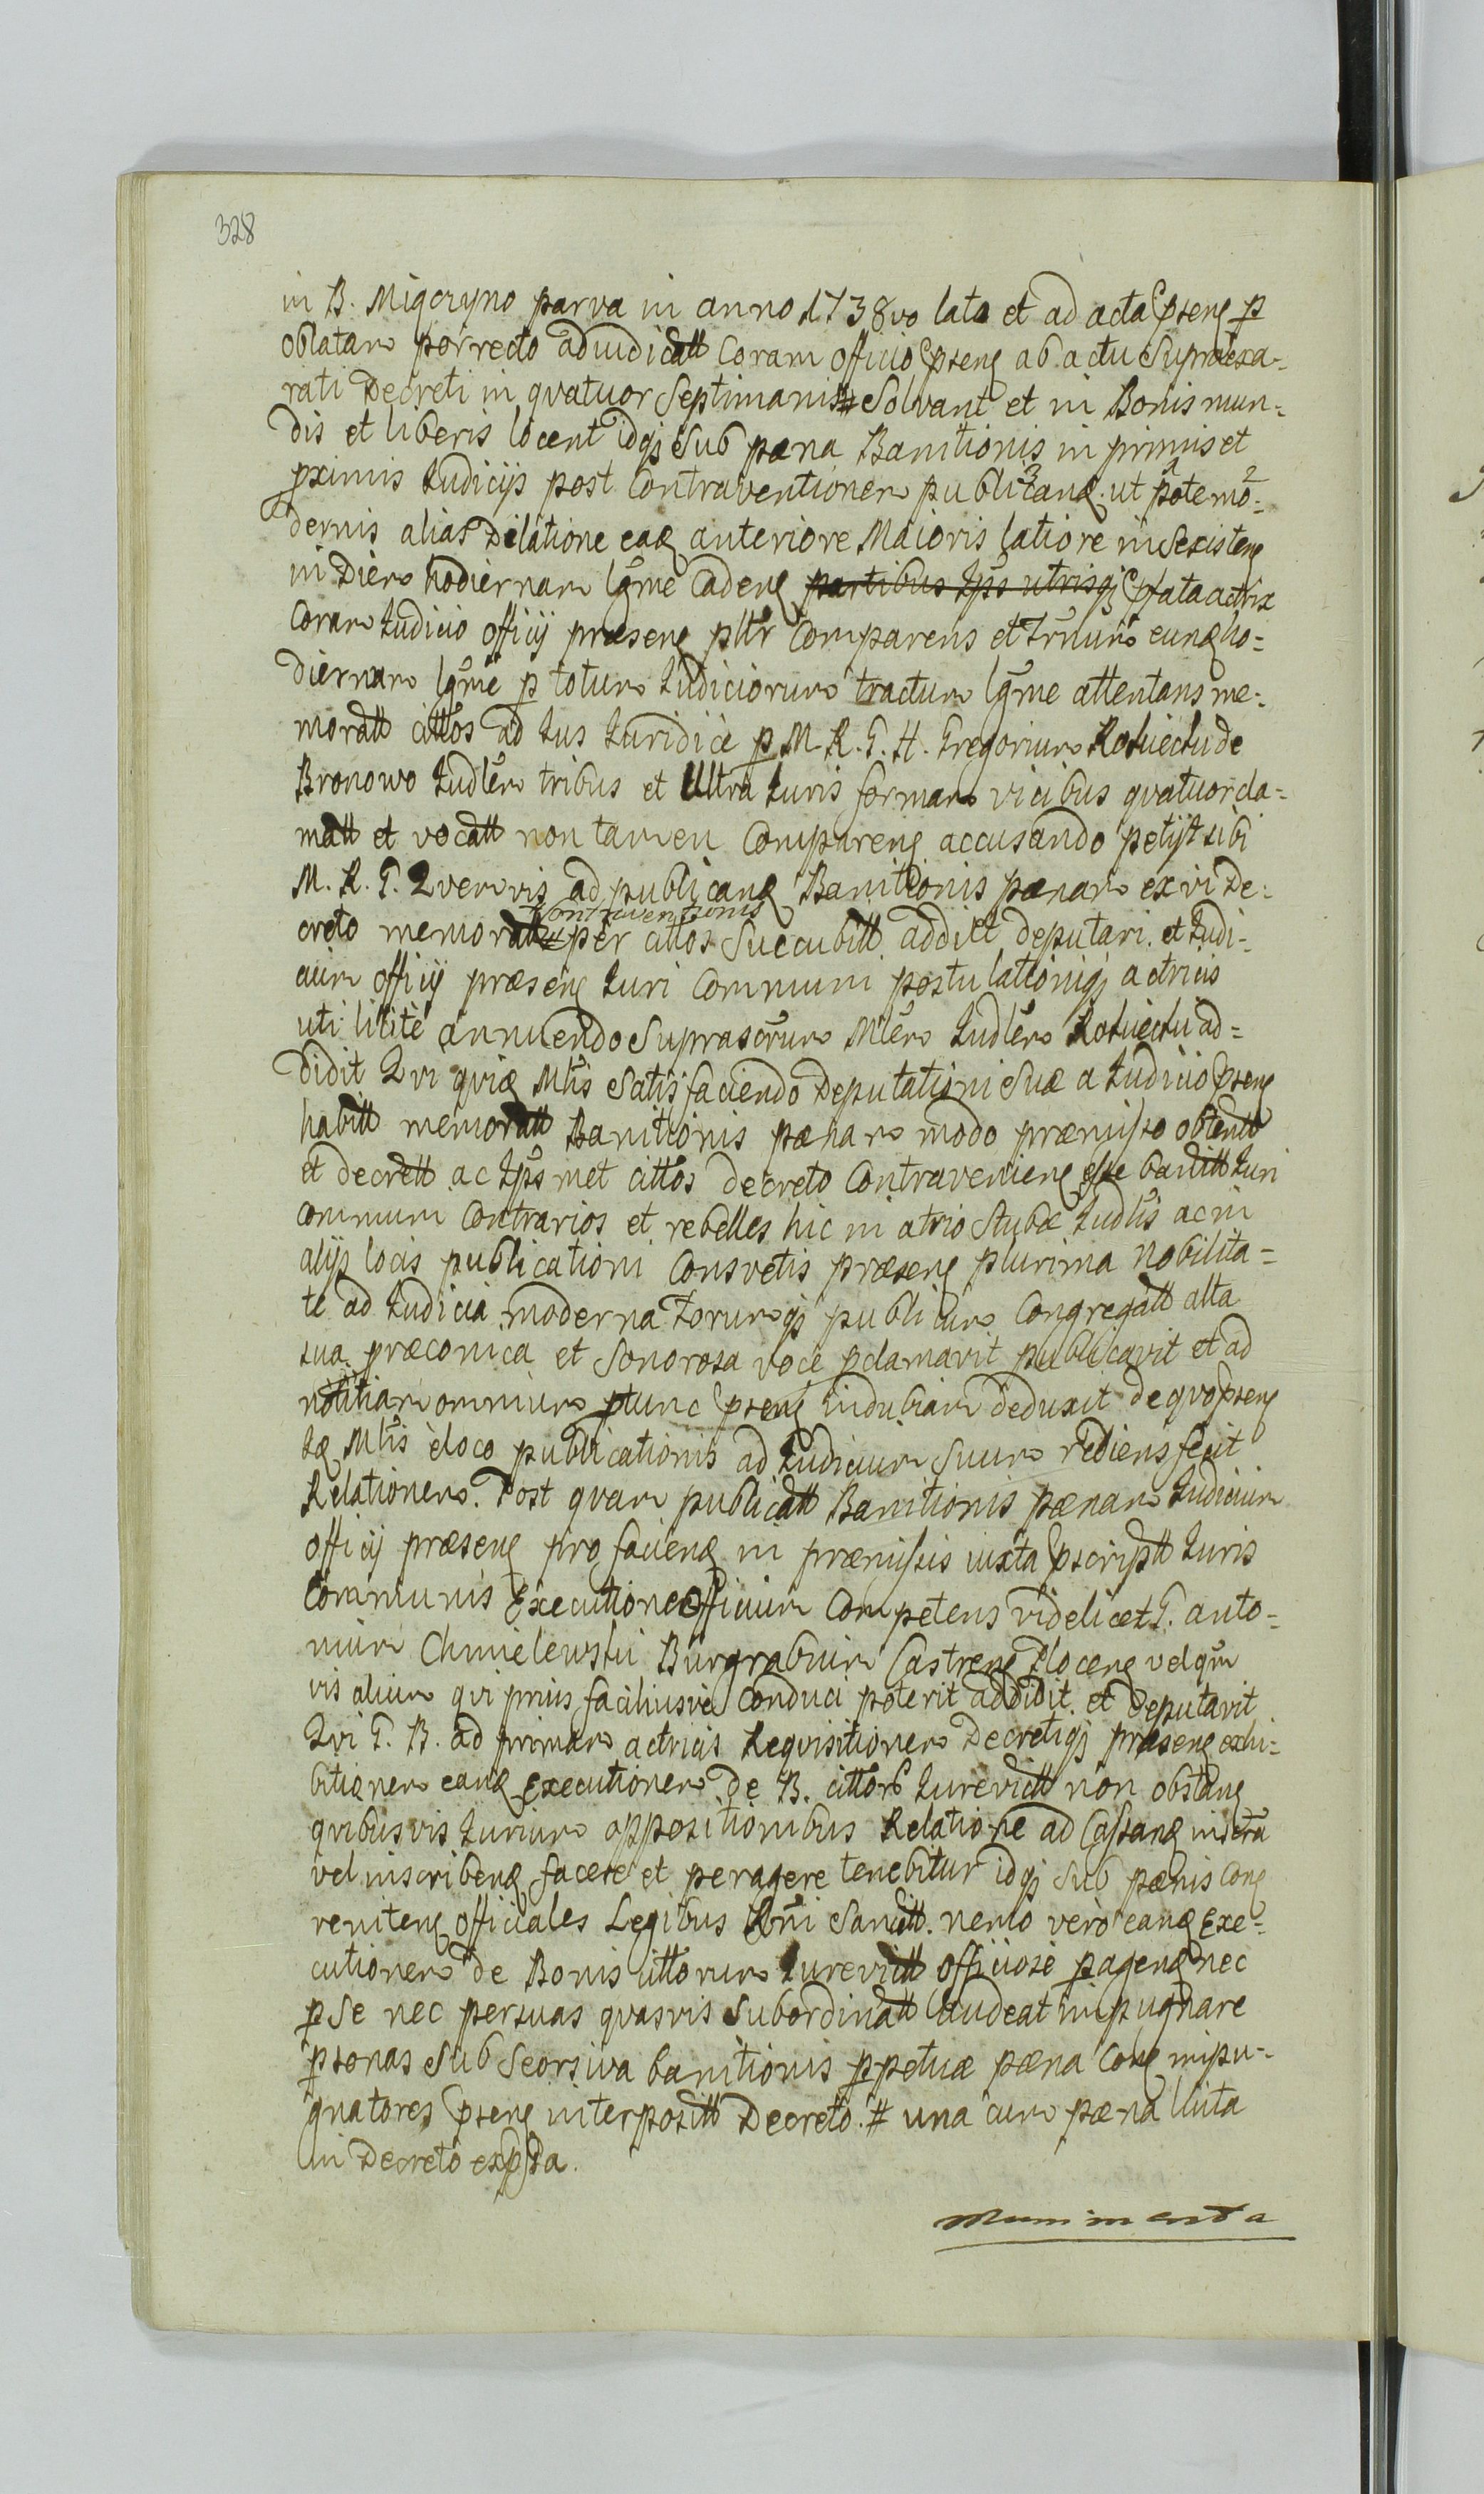 328
in B. Migoryno parva in anno 1738vo lata et ad acta pseng p
oblatam porrecto adiudicatt Coram officio pseng ab actu supraexa-
rati Decreti in qvatuor Septimanis # Solvant et in Bonis mun-
dis et liberis locent idqj sub pæna Banitionis in primis et
pximis Judicijs post Contraventionem publicanq. ut pote mo-
dernis alias Dilatione eaq anteriore Maioris latiore in se existeng
in Diem hodiernam lgme Cadeng partibus Ipis utrisqj pfata actrix
Coram Judicio officij præseng pltr Comparens et Trmum eunq ho-
diernam lgme p totum Judiciorum tractum lgme attentans me-
moratt cittos ad Jus Juridice p M. R. G. H. Gregorium Rotuiectu de
Bronowo Judlem tribus et Ultra Juris formam vicibus qvatuor cla-
matt et vocatt non tamen Compareng accusando petijt sibi
M. R. G. Qvemvis ad publicanq Banitionis pænam ex vi De-
Contraventionis
creto memoratt # per cittos Succubitt addi et deputari. et Judi-
cium officij præseng Juri Communi postulationiqj actricis
uti licite annuendo Suprascrum Mlem Judlem Rotuiectu ad-
didit Qvi qviæ Mlis Satisfaciendo Deputationi Suæ a Judicio pseng
habitt memoratt Banitionis pænam modo præmisso obtentt
et decrett ac Ipsmet cittos decreto Contravenieng esse banitt Juri
communi Contrarios et rebelles hic in atrio Stubæ Judlis ac in
alijs locis publicationi Consvetis præseng plurima nobilita-
te ad Judicia moderna Forumqj publicum Congregatt alta
sua præconica et Sonorosa voce pclamavit publicavit et ad
notitiam omnium ptunc pseng indubiam deduxit de qvo pseng
Mlis e loco publicationis ad Judicium Suum rediens fecit
Relationem. Post qvam publicatt Banitionis pænam Judicium
officij præseng pro facienq in præmissis iuxta pscriptt Juris
Communis Executione officium Competens videlicet G. anto-
nium Chmielewski Burgrabium Castreng Ploceng vel qm
vis alium qvi prius faciliusve Conduci poterit addidit et deputavit
Qvi G. B. ad primam actricis Reqvisitionem Decretiqj præseng exhi-
bitionem eanq Executionem de B. cittor Jurevictt non obstang
qvibusvis Jurium oppositionibus Relatione ad Cassanq inscra
vel inscribenq facere et peragere tenebitur idqj Sub pænis Cong
reniteng officiales Legibus Rni Sancitt. nemo vero eanq Exe-
cutionem de Bonis cittorum Jurevictt officiose pagenq nec
p Se nec per suas qvasvis Subordinatt audeat impugnare
psonas Sub Seorsiva banitionis ppetuæ pæna Cong impu-
gnatores pseng interpositt Decreto. # una cum pæna
in Decreto expssa.
Munimenta